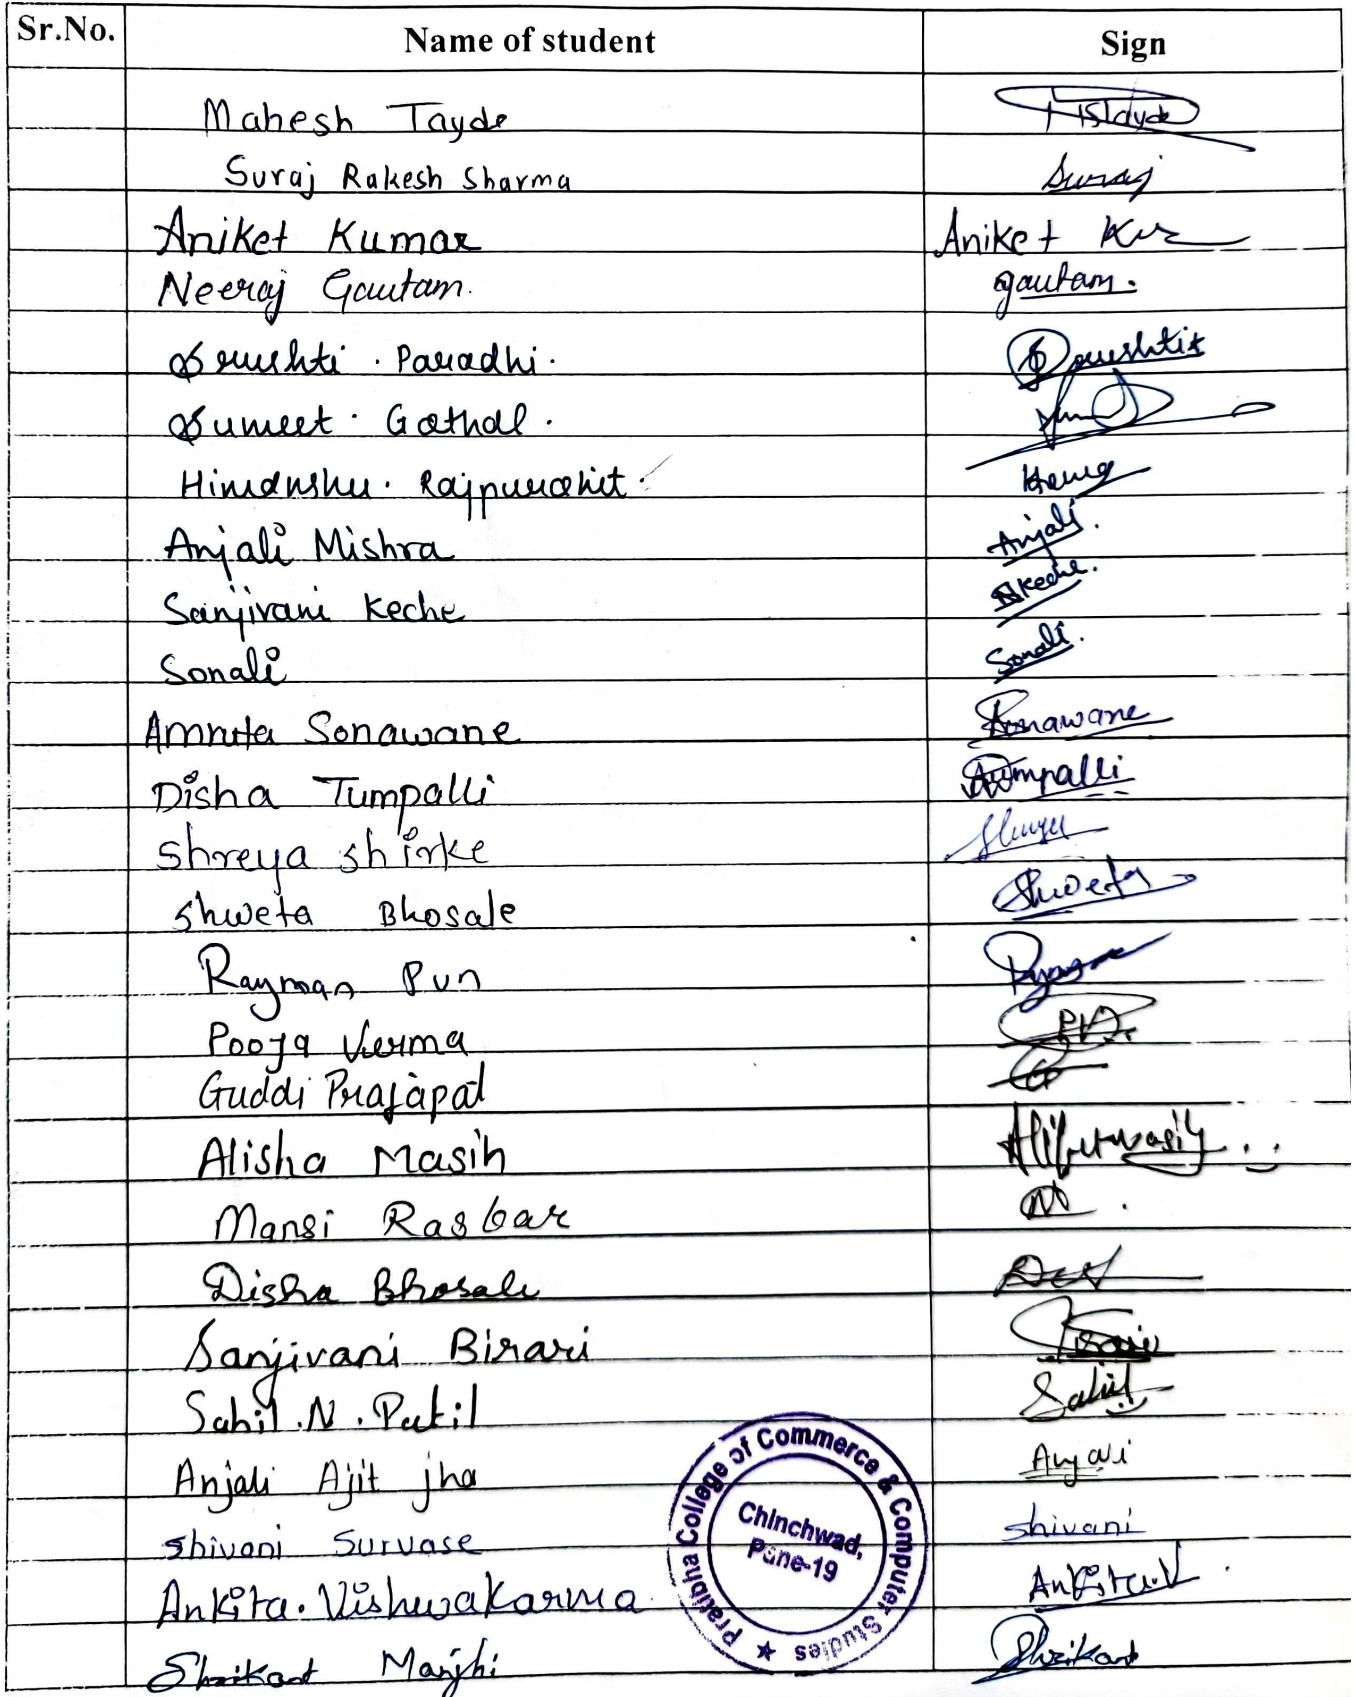 Sr.No. Name of student Sign
Mahesh Tayde
Suraj Rakesh Sharma Suraj
Aniket Kumar Aniket
Neeraj Gautam. gautam.
Srushti . Paradhi.
Sumeet . Gathal.
Himanshu. Rajpurohit.
Anjali Mishra Anjali.
Sanjivani Keche SKeche.
Sonali Sonali.
Amruta Sonawane Sonawane
Disha Tumpalli Tumpalli
Shreya Shirke
Shweta Bhosale Shweta
Rayman Pun
Pooja Verma
Guddi Prajapat
Alisha Masih
Mansi Rasbar
Disha Bhosale
Sanjivani Birari
Sahil .N. Patil Sahil
Anjali Ajit jha Anjali
Shivani Survase Shivani
Ankita. Vishwakarma Ankita.V
Shrikant Manjhi Shrikant
Pratibha College of Commerce & Computer Studies
Chinchwad,
Pune-19